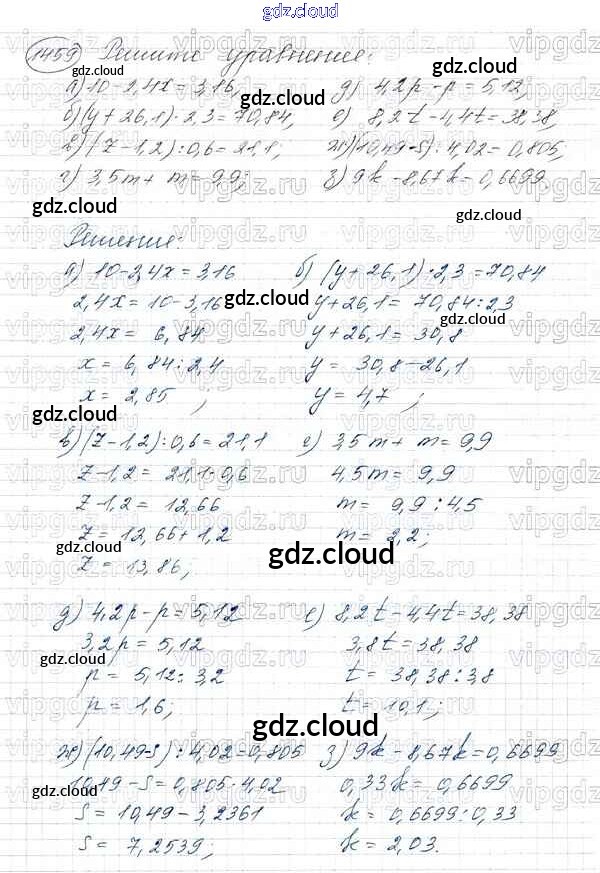 gdz.cloud
1459 Решите уравнение:
а) 10-2,4x=3,16, д) 4,2p-p=5,12,
б) (y+26,1)·2,3=70,84, е) 8,2t-4,4t=38,38,
в) (z-1,2):0,6=21,1; ж) (10,49-s):4,02=0,805;
г) 3,5m+m=9,9; з) 9k-8,67k=0,6699.
Решение:
а) 10-2,4x=3,16 б) (y+26,1)·2,3=70,84
2,4x=10-3,16 y+26,1=70,84:2,3
2,4x=6,84 y+26,1=30,8
x=6,84:2,4 y=30,8-26,1
x=2,85; y=4,7;
в) (z-1,2):0,6=21,1 г) 3,5m+m=9,9
z-1,2=21,1·0,6 4,5m=9,9
z-1,2=12,66 m=9,9:4,5
z=12,66+1,2 m=2,2;
z=13,86;
д) 4,2p-p=5,12 е) 8,2t-4,4t=38,38
3,2p=5,12 3,8t=38,38
p=5,12:3,2 t=38,38:3,8
p=1,6; t=10,1;
ж) (10,49-s):4,02=0,805 з) 9k-8,67k=0,6699
10,49-s=0,805·4,02 0,33k=0,6699
s=10,49-3,2361 k=0,6699:0,33
s=7,2539; k=2,03.